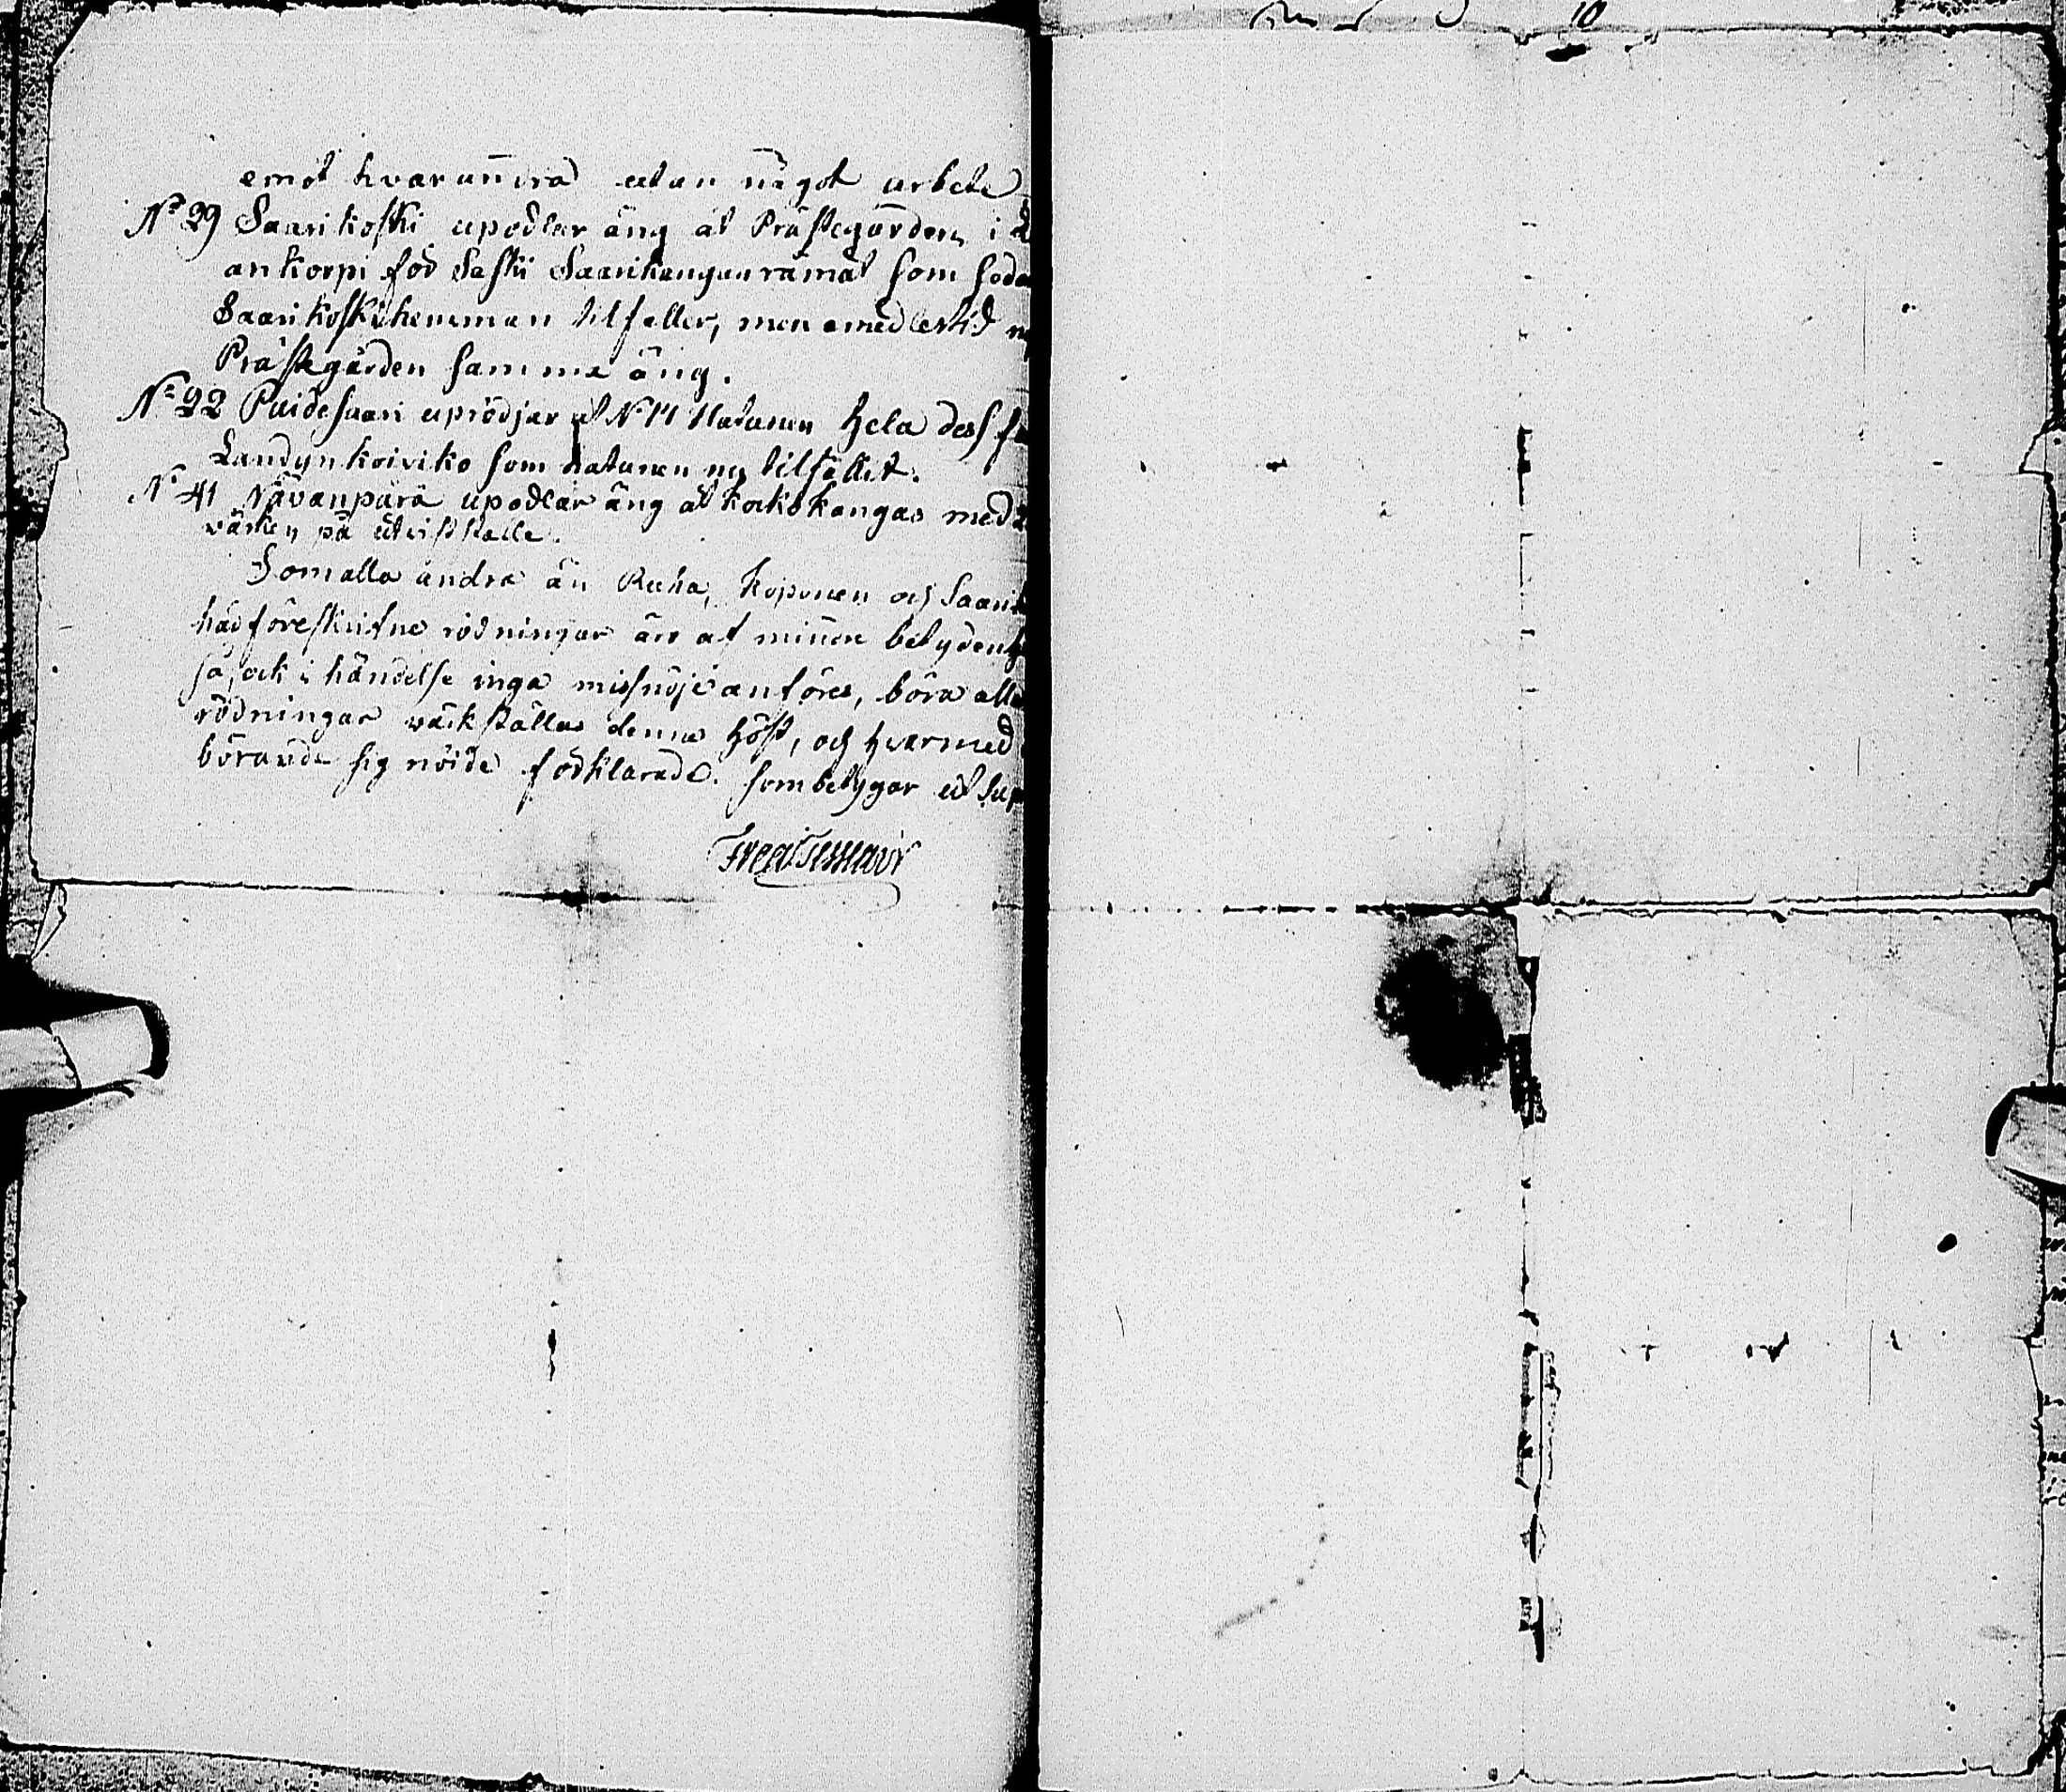 10
emot hvarannra utan något arbete
No 29 Saarikoski upodlar äng åt Prästegården i
ankorpi för Saski Saarikangan rämät som
Saarikoski hemman tilfaller, men emedlertid
Prästegården samma äng.
No 22 Puidesaari uprödjar åt No 14 Hatunen hela dess
Landyn koiviko som hatunen ny tilfallit.
No 41 Nävanpärä upodlar äng åt kockokangas med
på utvist stelle.
Som alla andra än Ruha, koponen och
härföreskrifne rödningar äro af minnre
så, ock i händelse inga missnöje anföres, böra
rödningar värkställas denna höst, och hvarmed
börande sig nöide förklarade. som betygar ut